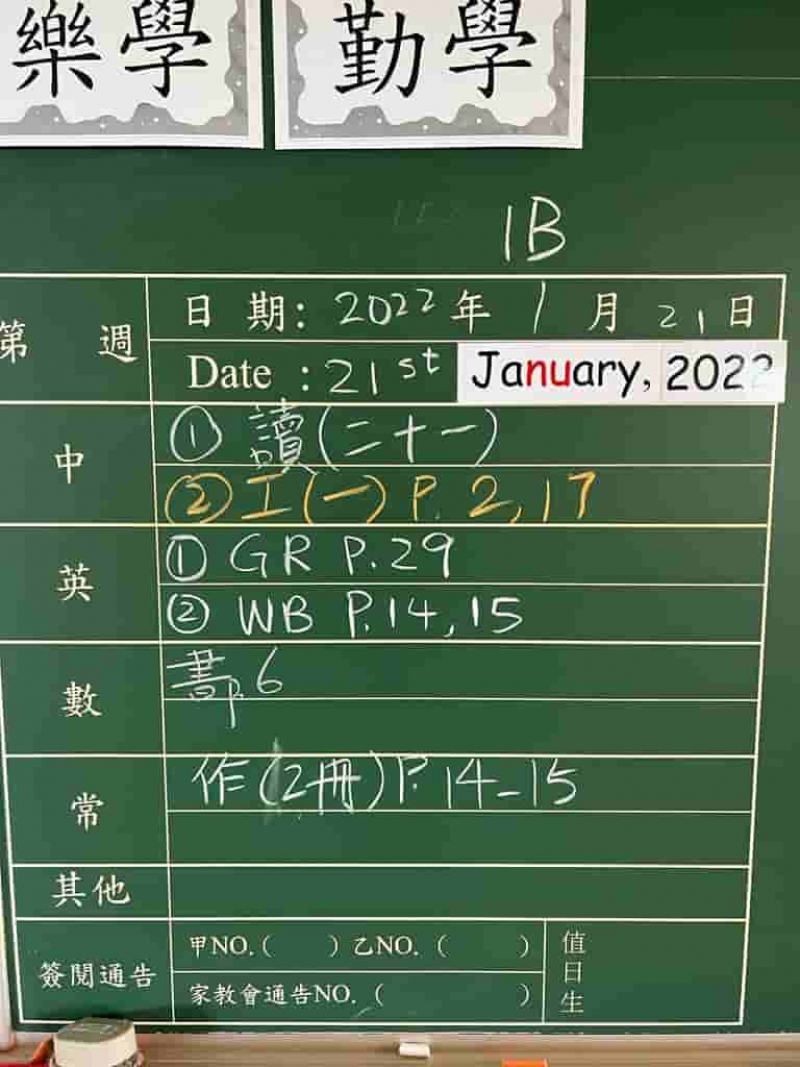 樂學 勤學
1B
第 週
日 期: 2022 年 1 月 21 日
Date : 21st January, 2022
中
① 讀(二十一)
② 工(一) P. 2,17
英
① GR P.29
② WB P.14,15
數
書P.6
常
作(2冊)P.14-15
其他
簽閱通告
甲NO.( ) 乙NO.( )
家教會通告NO.( )
值日生